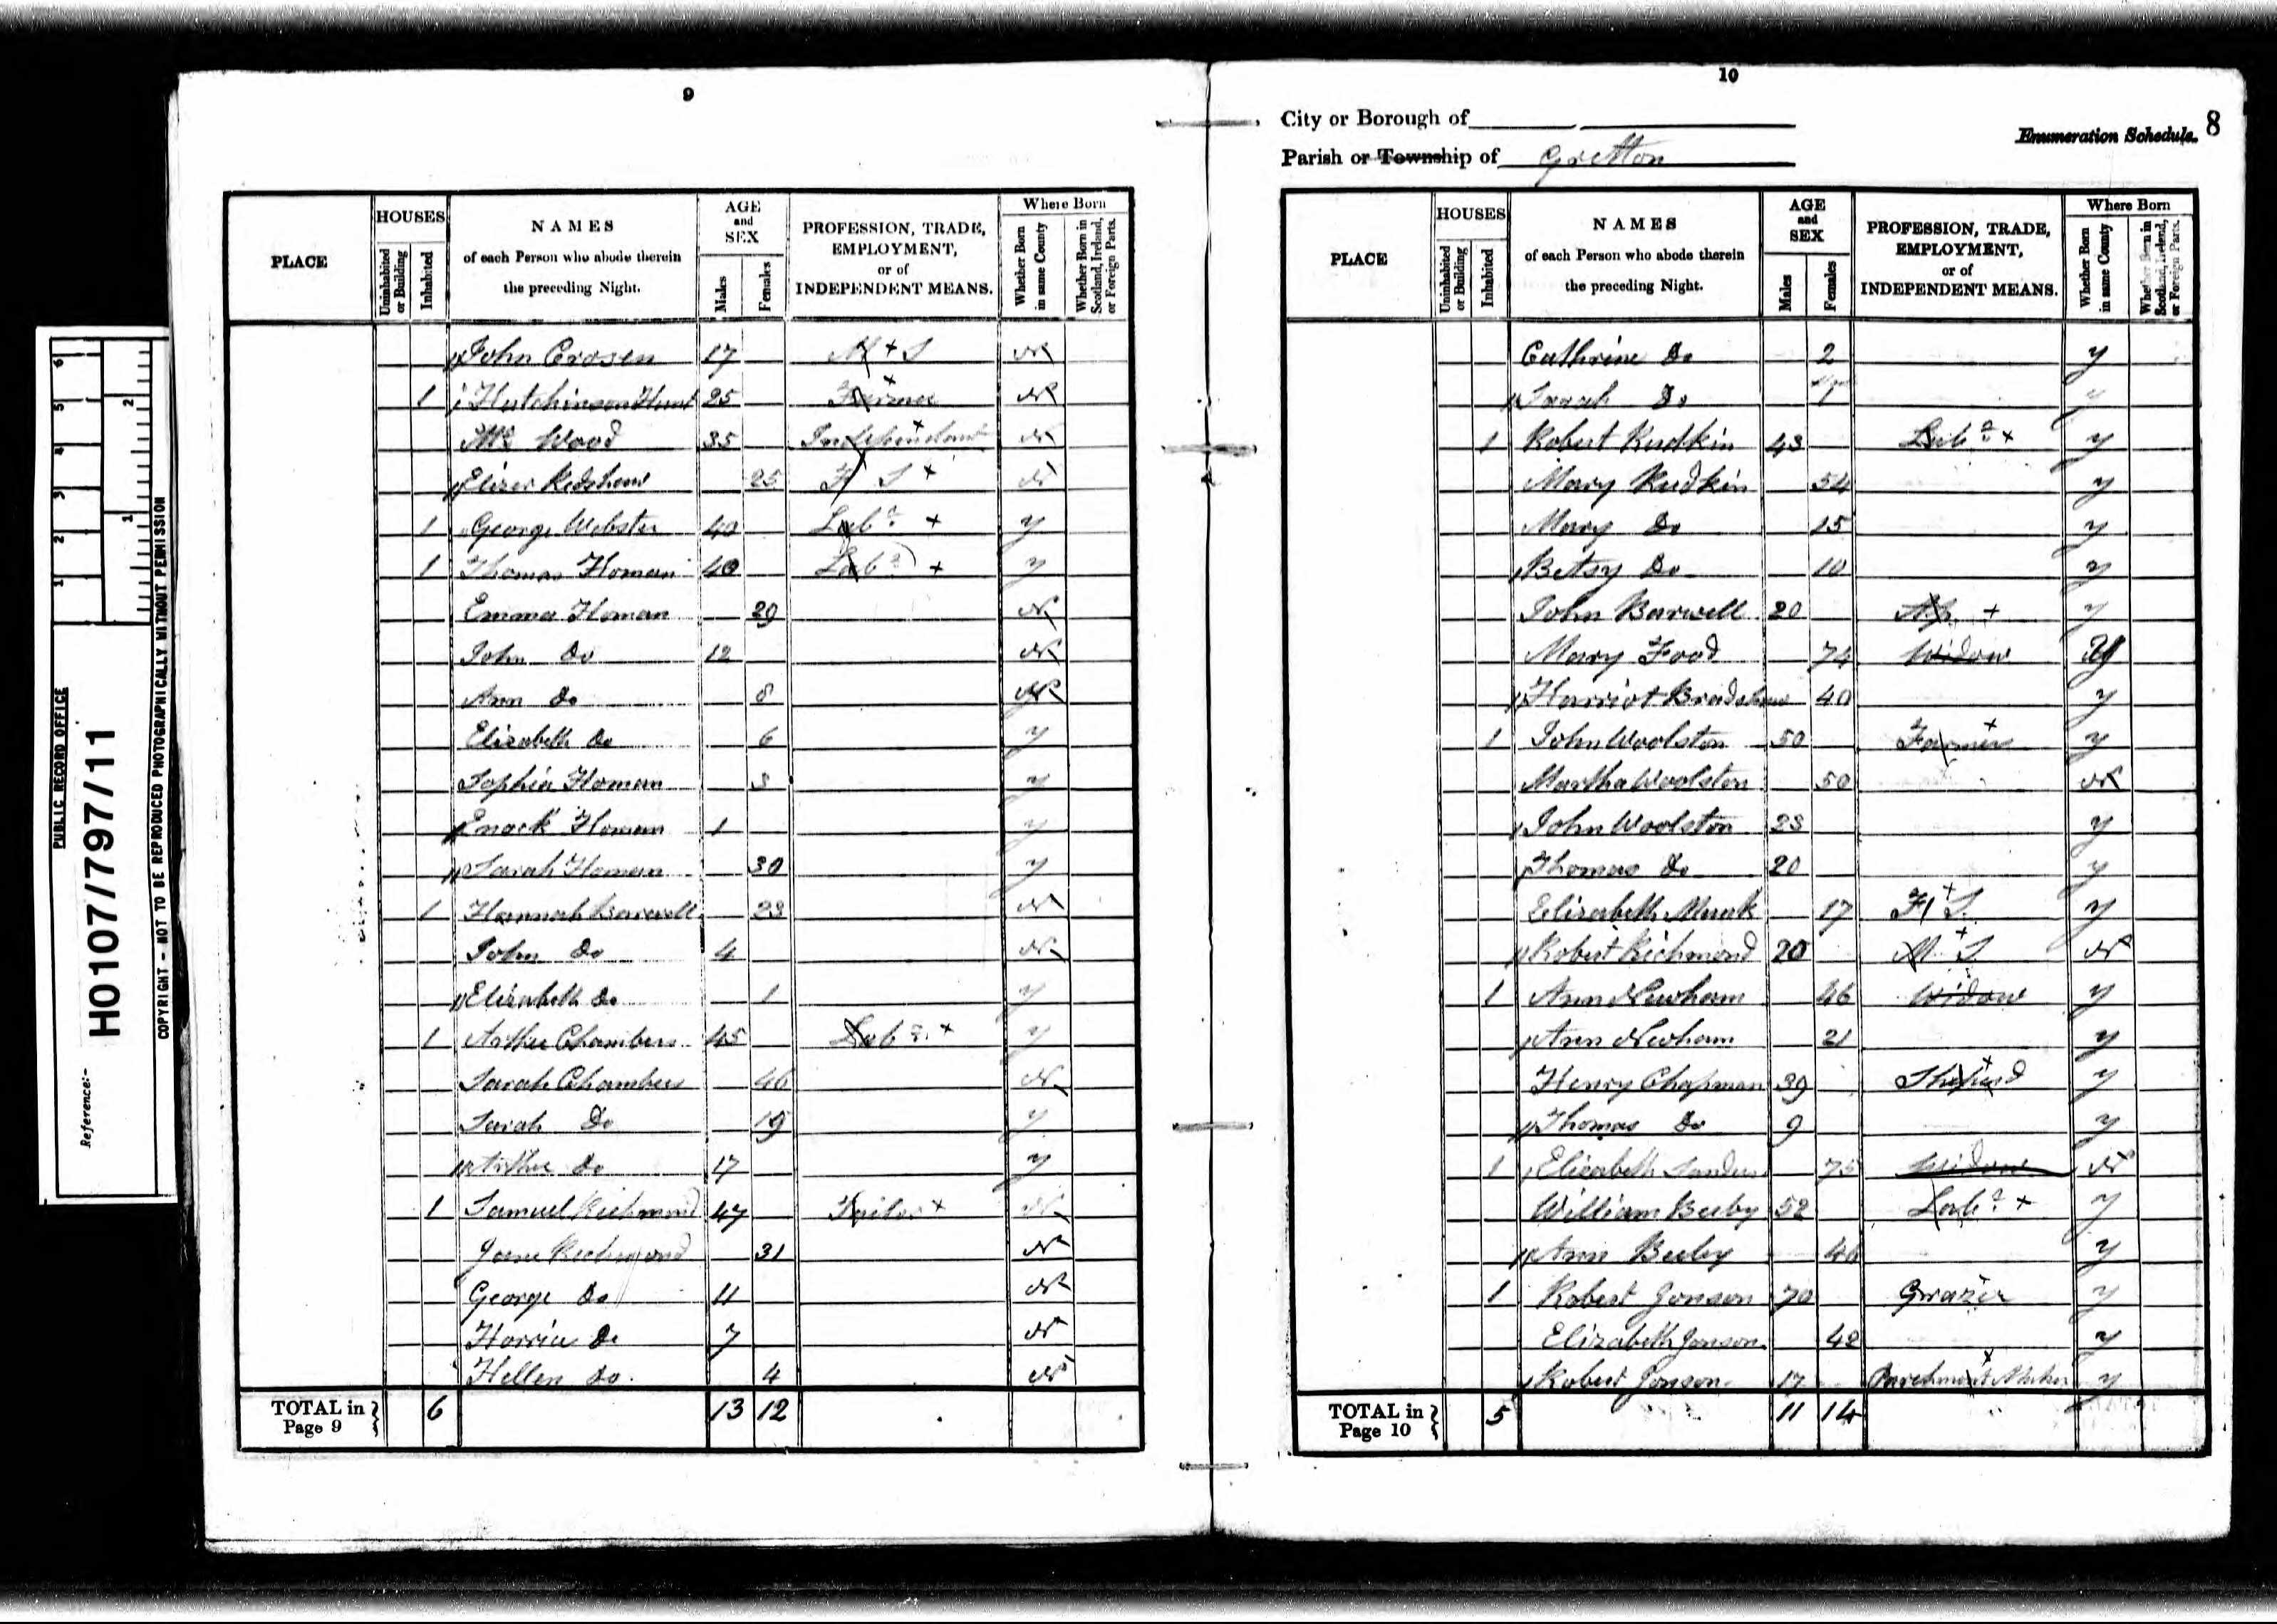 PUBLIC RECORD OFFICE
Reference:-
HO107/797/11
COPYRIGHT - NOT TO BE REPRODUCED PHOTOGRAPHICALLY WITHOUT PERMISSION
1 2 3 4 5 6
1 2
9
PLACE
HOUSES
Uninhabited or Building
Inhabited
NAMES
of each Person who abode therein
the preceding Night.
AGE and SEX
Males
Females
PROFESSION, TRADE, EMPLOYMENT, or of INDEPENDENT MEANS.
Where Born
Whether Born in same County
Whether Born in Scotland, Ireland, or Foreign Parts.
John Crosen 17 M S N
1 Hutchinson Hunt 25 Farmer N
Wood 35 Independant N
Elizer Redshaw 25 F S N
1 George Webster 40 Labr y
1 Thomas Homan 40 Labr y
Emma Homan 29 N
John Do 12 N
Ann Do 8 N
Elizabeth Do 6 y
Sophia Homan 3 y
Enock Homan 1 y
Sarah Homan 30 y
1 Hannah Barwell 23 N
John Do 4 N
Elizabeth Do 1 y
1 Arthur Chambers 45 Labr y
Sarah Chambers 46 N
Sarah Do 19 y
Arthur Do 17 y
1 Samuel Richmond 47 Tailor N
Jane Richmond 31 N
George Do 11 N
Do 7 N
Hellen Do 4 N
TOTAL in Page 9 } 6 13 12
10
City or Borough of
Parish or Township of Gretton
Enumeration Schedule. 8
PLACE
HOUSES
Uninhabited or Building
Inhabited
NAMES
of each Person who abode therein
the preceding Night.
AGE and SEX
Males
Females
PROFESSION, TRADE, EMPLOYMENT, or of INDEPENDENT MEANS.
Where Born
Whether Born in same County
Whether Born in Scotland, Ireland, or Foreign Parts.
Cathrine Do 2 y
Sarah Do 1 y
1 Robert Rudkin 43 Labr y
Mary Rudkin 54 y
Mary Do 15 y
Betsy Do 10 y
John Barwell 20 Ap. y
Mary Food 74 Widow y
Harriot Bradshaw 40 y
1 John Woolston 50 Farmer y
Martha Woolston 50 N
John Woolston 23 y
Thomas Do 20 y
Elizabeth 17 F S. y
Robert Richmond 20 M S N
1 Ann Newham 46 Widow y
Ann Newham 21 y
Henry Chapman 39 y
Thomas Do 9 y
1 Elizabeth Sanders 75 Widow N
William Beeby 52 Labr y
Ann Beeby 46 y
1 Robert Jonson 70 Grazier y
Elizabeth Jonson 42 y
Robert Jonson 17 Parchment Maker y
TOTAL in Page 10 } 5 11 14